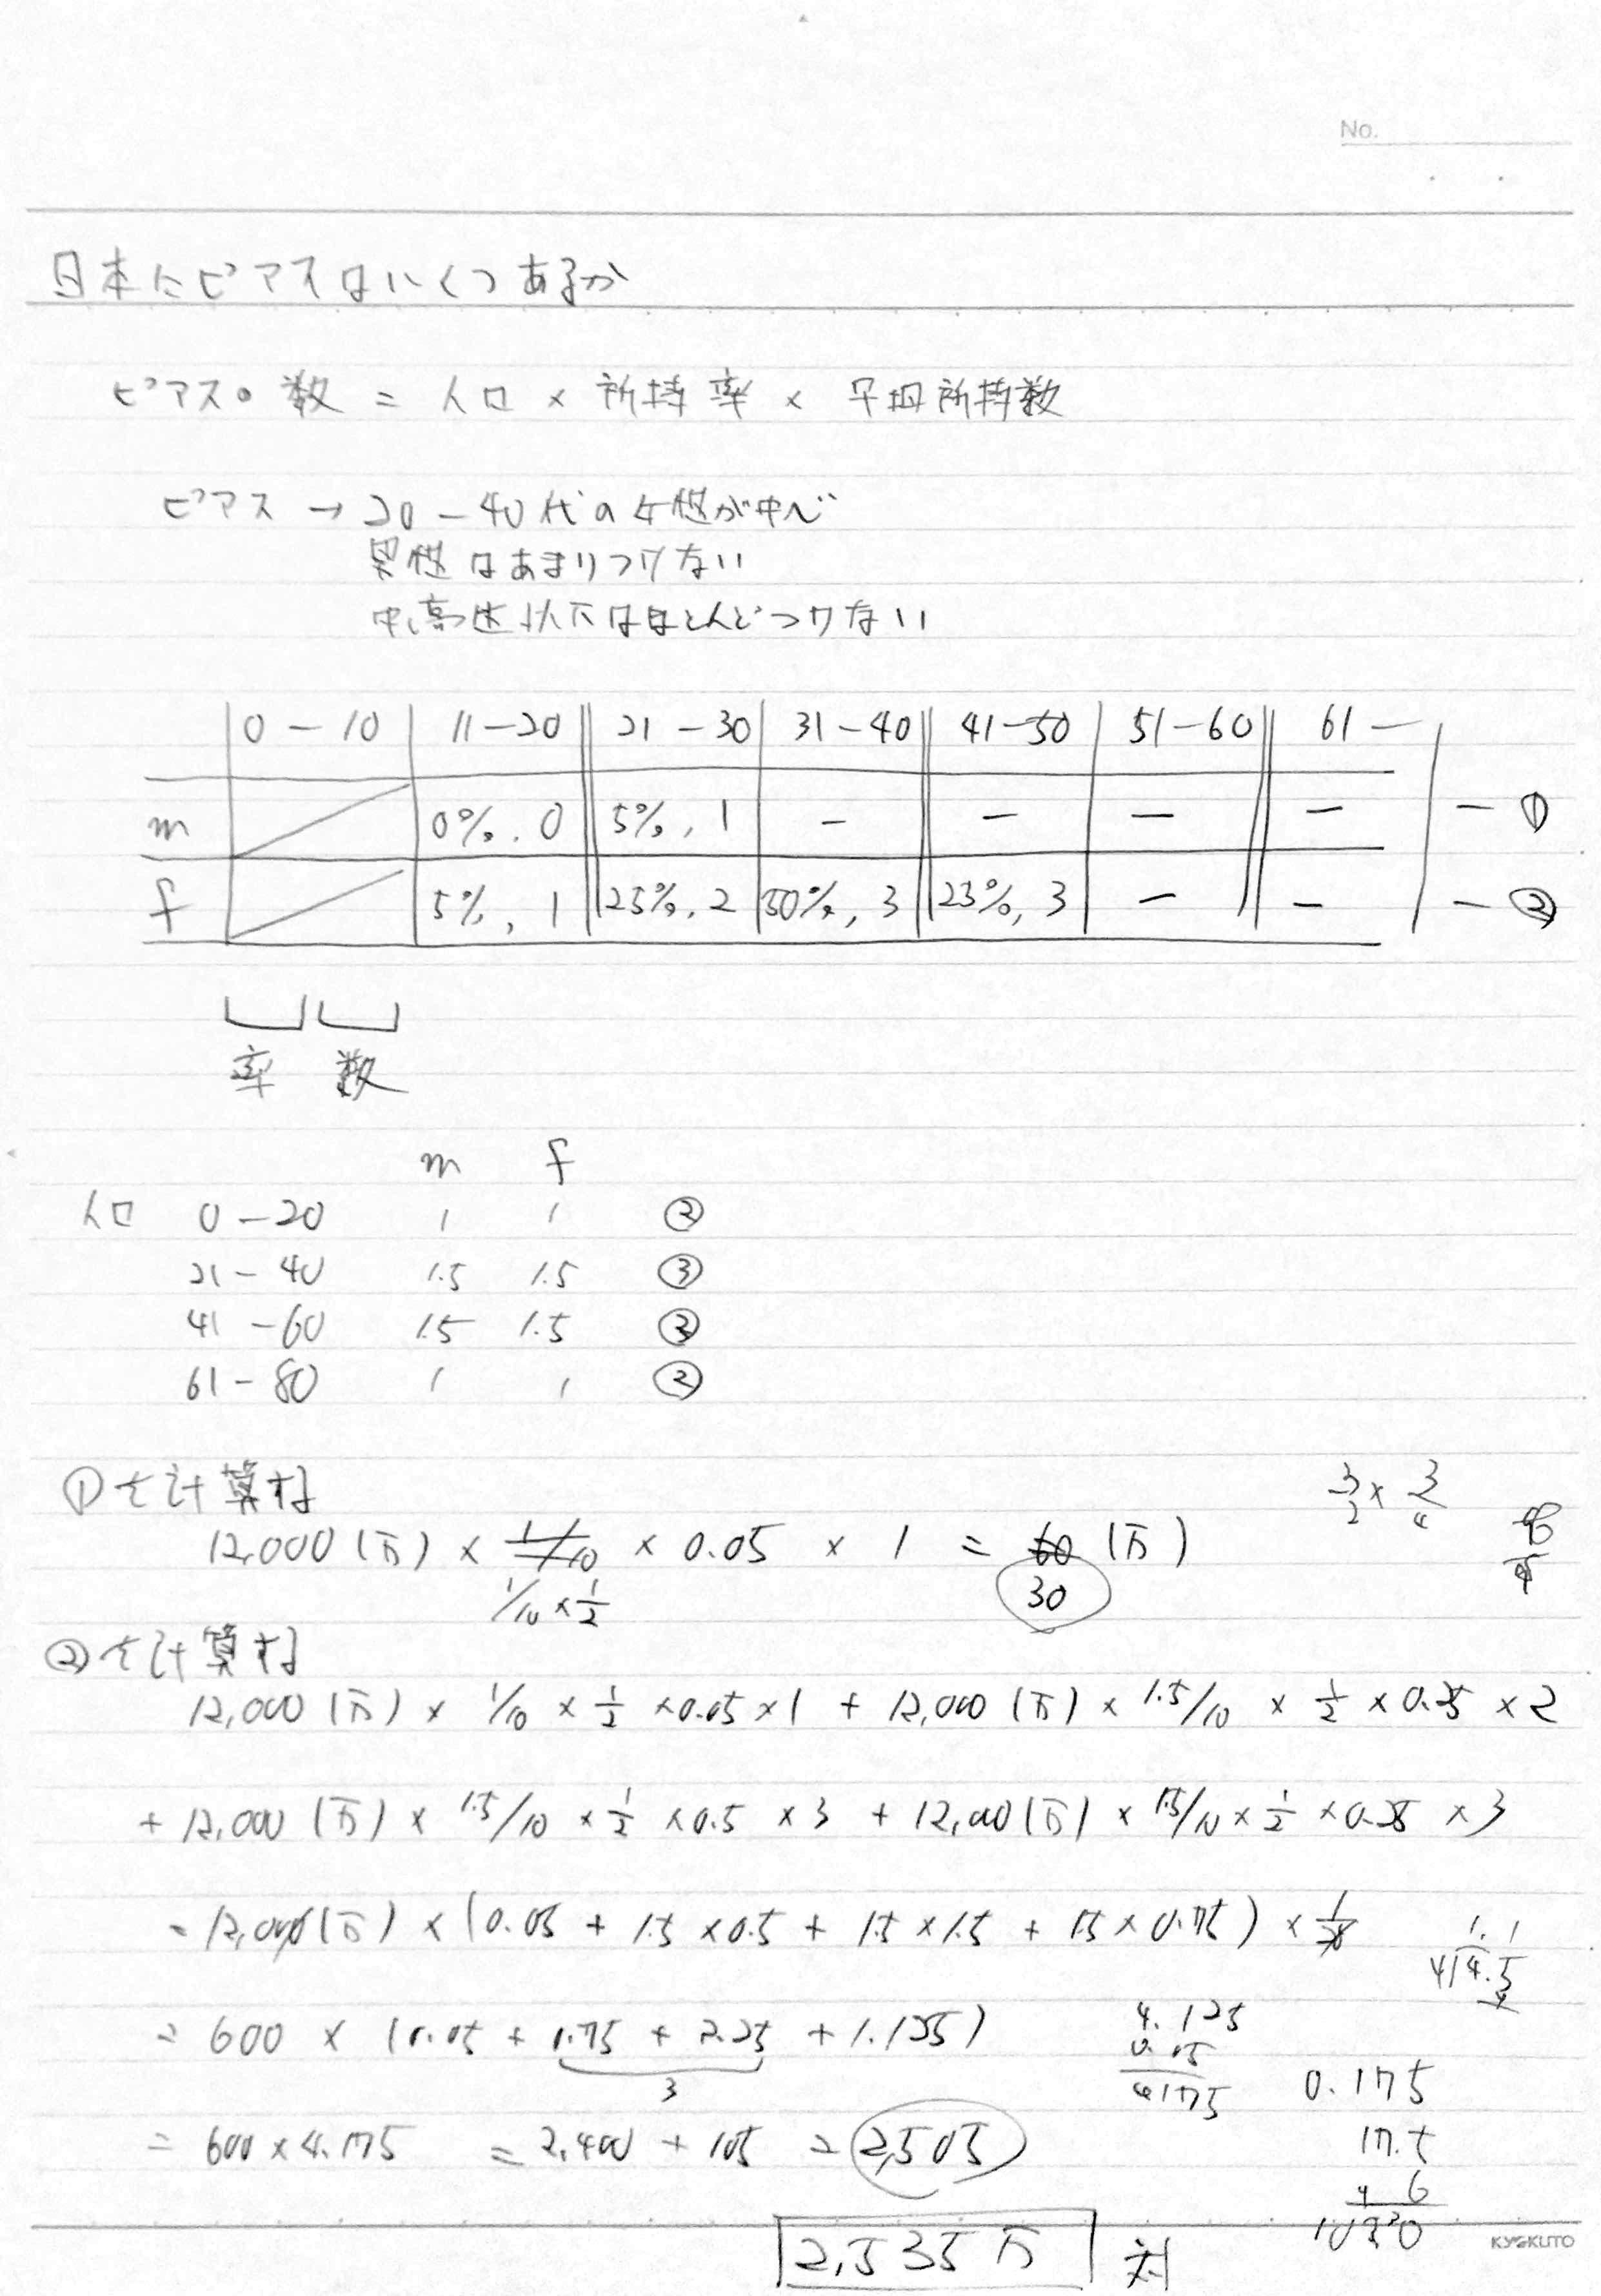 No.
日本にピアスはいくつあるか
ピアスの数 = 人口 × 所持率 × 平均所持数
ピアス → 20 - 40代の女性が中心
男性はあまりつけない
中、高生以下はほとんどつけない
0 - 10 11-20 21 - 30 31-40 41-50 51-60 61 -
m 0%, 0 5%, 1 - - - - - ①
f 5%, 1 25%, 2 50%, 3 25%, 3 - - - ②
率 数
m f
人口 0-20 1 1 ②
21-40 1.5 1.5 ③
41-60 1.5 1.5 ③
61-80 1 1 ②
①を計算する
3/2 × 3/4
12,000(万) × 1/10 × 0.05 × 1 = 60 (万)
1/10 × 1/2 30
②を計算する
12,000(万) × 1/10 × 1/2 × 0.05 × 1 + 12,000(万) × 1.5/10 × 1/2 × 0.25 × 2
+ 12,000(万) × 1.5/10 × 1/2 × 0.5 × 3 + 12,000(万) × 1.5/10 × 1/2 × 0.25 × 3
= 12,000(万) × (0.05 + 1.5 × 0.5 + 1.5 × 1.5 + 1.5 × 0.75) × 1/20
= 600 × (0.05 + 0.75 + 2.25 + 1.125)
3
4.125
0.05
4.175
0.175
= 600 × 4.175 = 2,400 + 105 = 2,505
17.5
6
2,535万 対
KYOKUTO